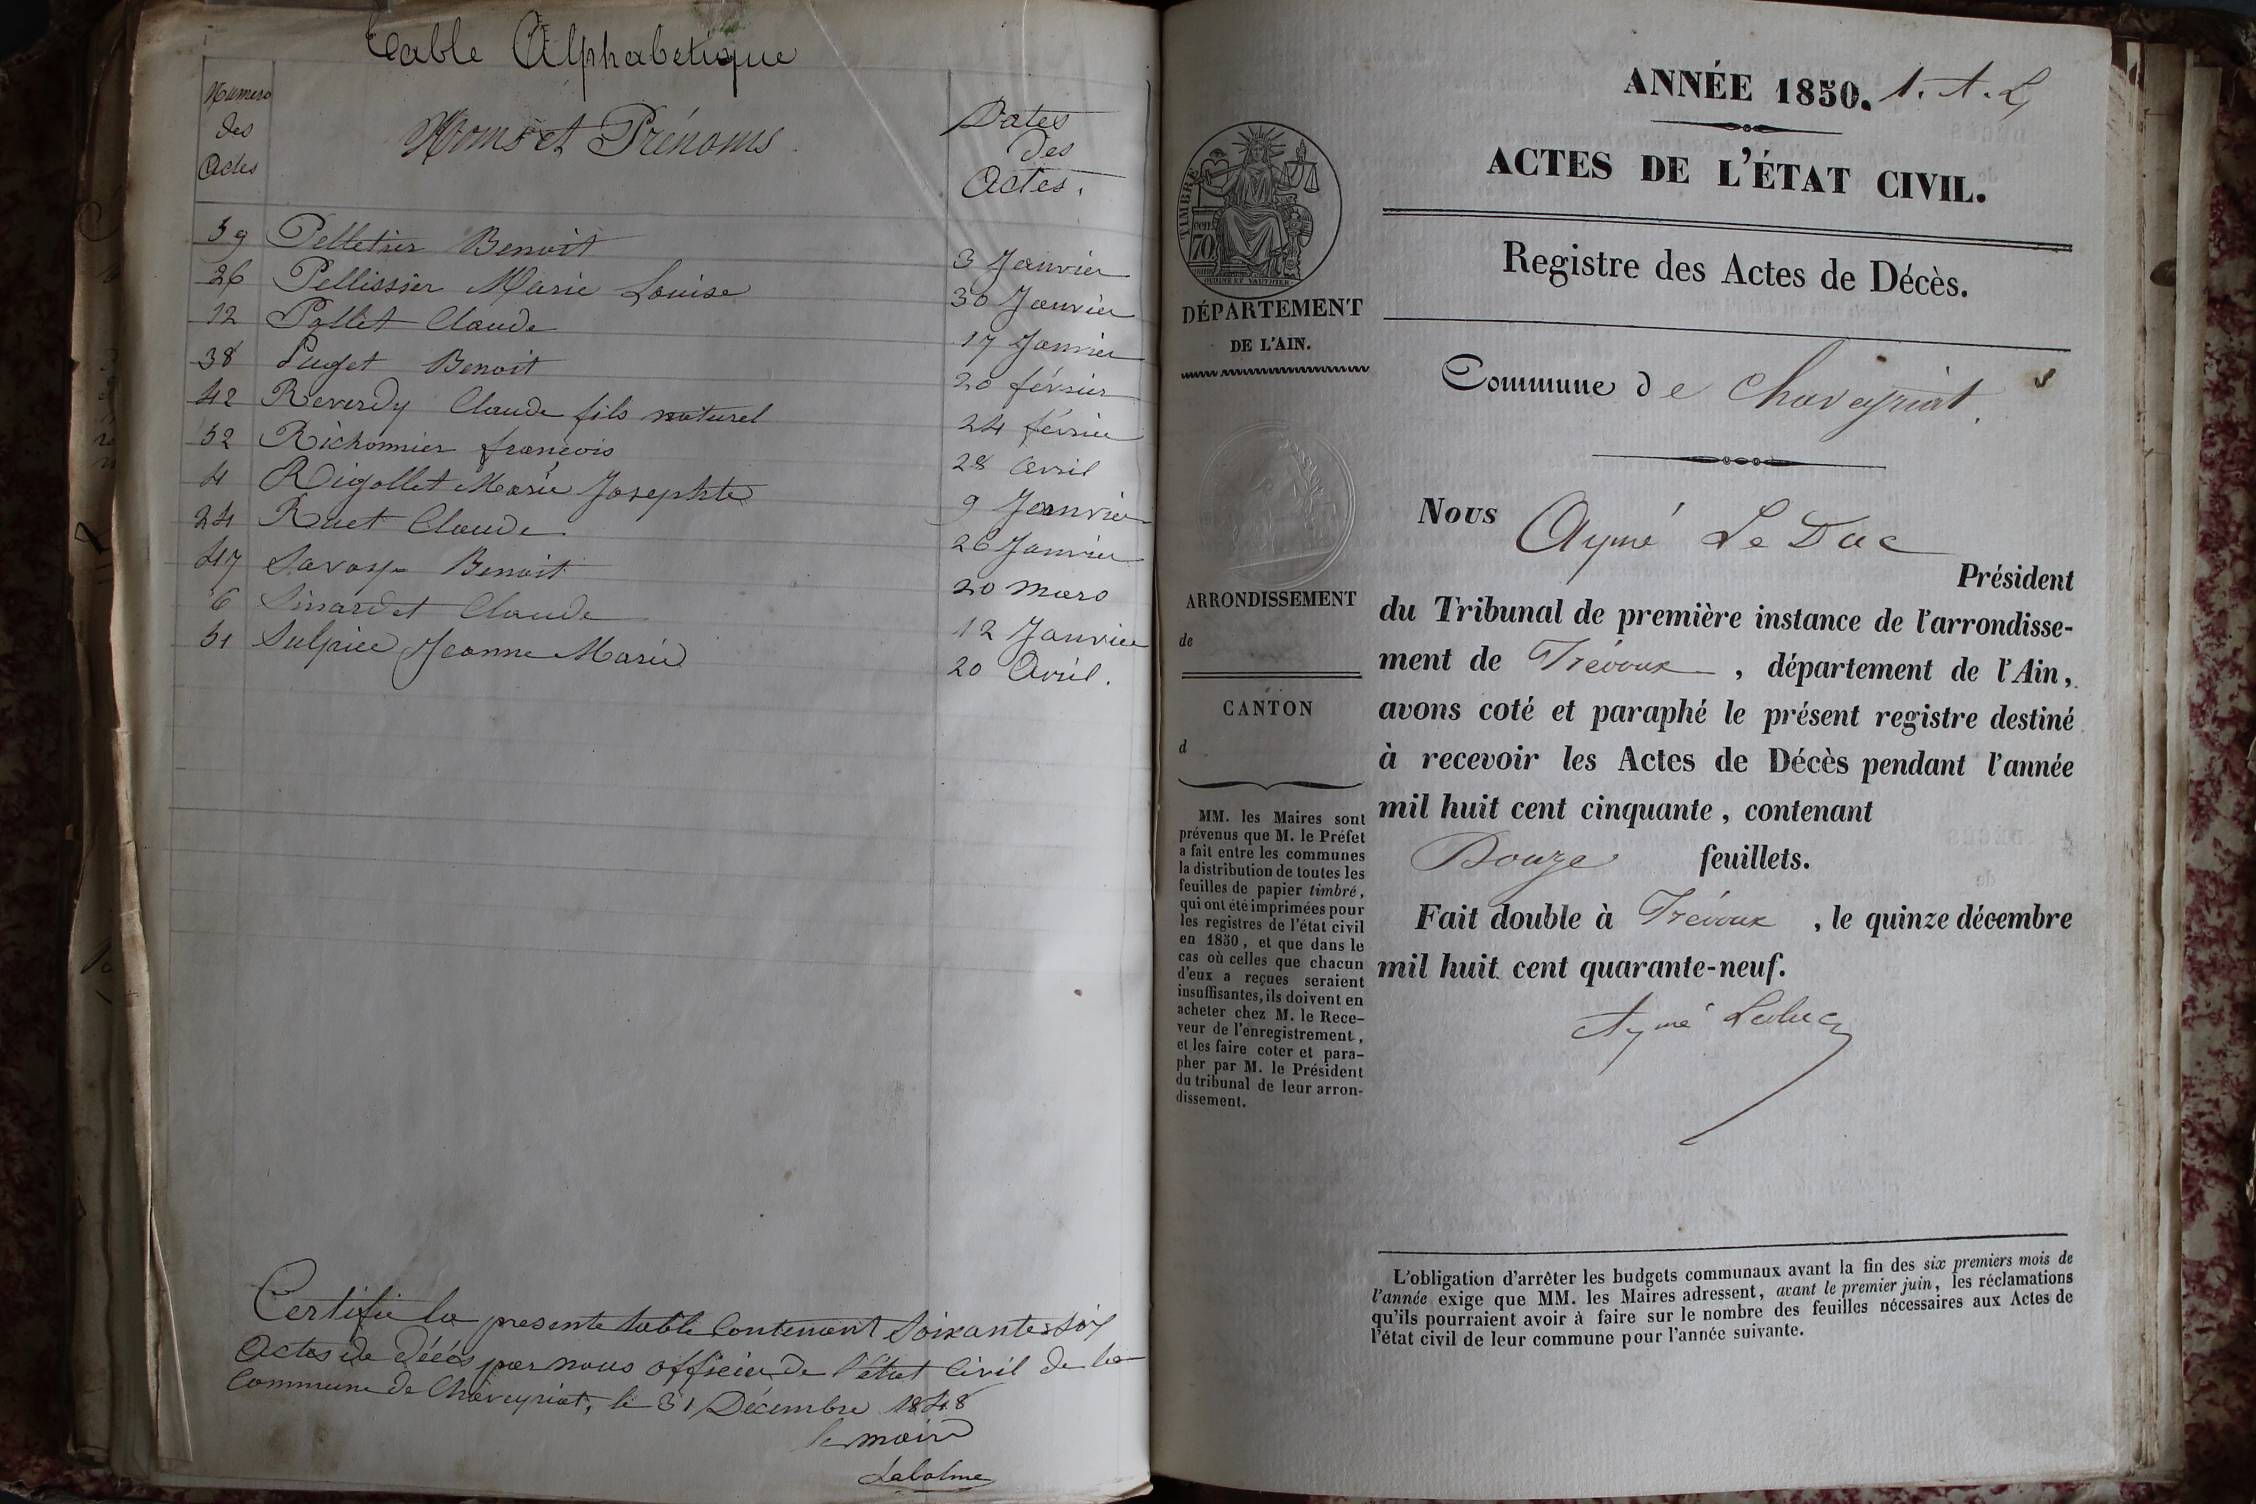 Table Alphabétique
Numero
des
Actes
Noms et Prénoms
Dates
des
Actes.
59 Pelletier Benoit 3 Janvier
26 Pellissier Marie Louise 30 Janvier
12 Pollet Claude 17 Janvier
38 Puget Benoit 20 février
42 Reverdy Claude fils naturel 24 février
52 Richonnier françois 28 avril
4 Rigollet Marie Josephte 9 Janvier
24 Ruet Claude 26 Janvier
47 Savoye Benoit 20 mars
6 Sinardet Claude 12 Janvier
51 Sulpice Jeanne Marie 20 Avril.
Certifié la presente table Contenant Soixante six
Actes de décés par nous officier de l'état Civil de la
Commune de Chaveyriat, le 31 Décembre 1848
le maire
Labalme
ANNÉE 1850. 1. A. L
ACTES DE L'ÉTAT CIVIL.
Registre des Actes de Décès.
TIMBRE
70
DÉPARTEMENT
DE L'AIN.
ARRONDISSEMENT
de
CANTON
d
MM. les Maires sont
prévenus que M. le Préfet
a fait entre les communes
la distribution de toutes les
feuilles de papier timbré,
qui ont été imprimées pour
les registres de l'état civil
en 1850, et que dans le
cas où celles que chacun
d'eux a reçues seraient
insuffisantes, ils doivent en
acheter chez M. le Rece-
veur de l'enregistrement,
et les faire coter et para-
pher par M. le Président
du tribunal de leur arron-
dissement.
Commune de Chaveyriat.
Nous Aymé Le Duc
Président
du Tribunal de première instance de l'arrondisse-
ment de Trévoux, département de l'Ain,
avons coté et paraphé le présent registre destiné
à recevoir les Actes de Décès pendant l'année
mil huit cent cinquante, contenant
Douze feuillets.
Fait double à Trévoux, le quinze décembre
mil huit cent quarante-neuf.
Aymé Leduc
L'obligation d'arrêter les budgets communaux avant la fin des six premiers mois de
l'année exige que MM. les Maires adressent, avant le premier juin, les réclamations
qu'ils pourraient avoir à faire sur le nombre des feuilles nécessaires aux Actes de
l'état civil de leur commune pour l'année suivante.